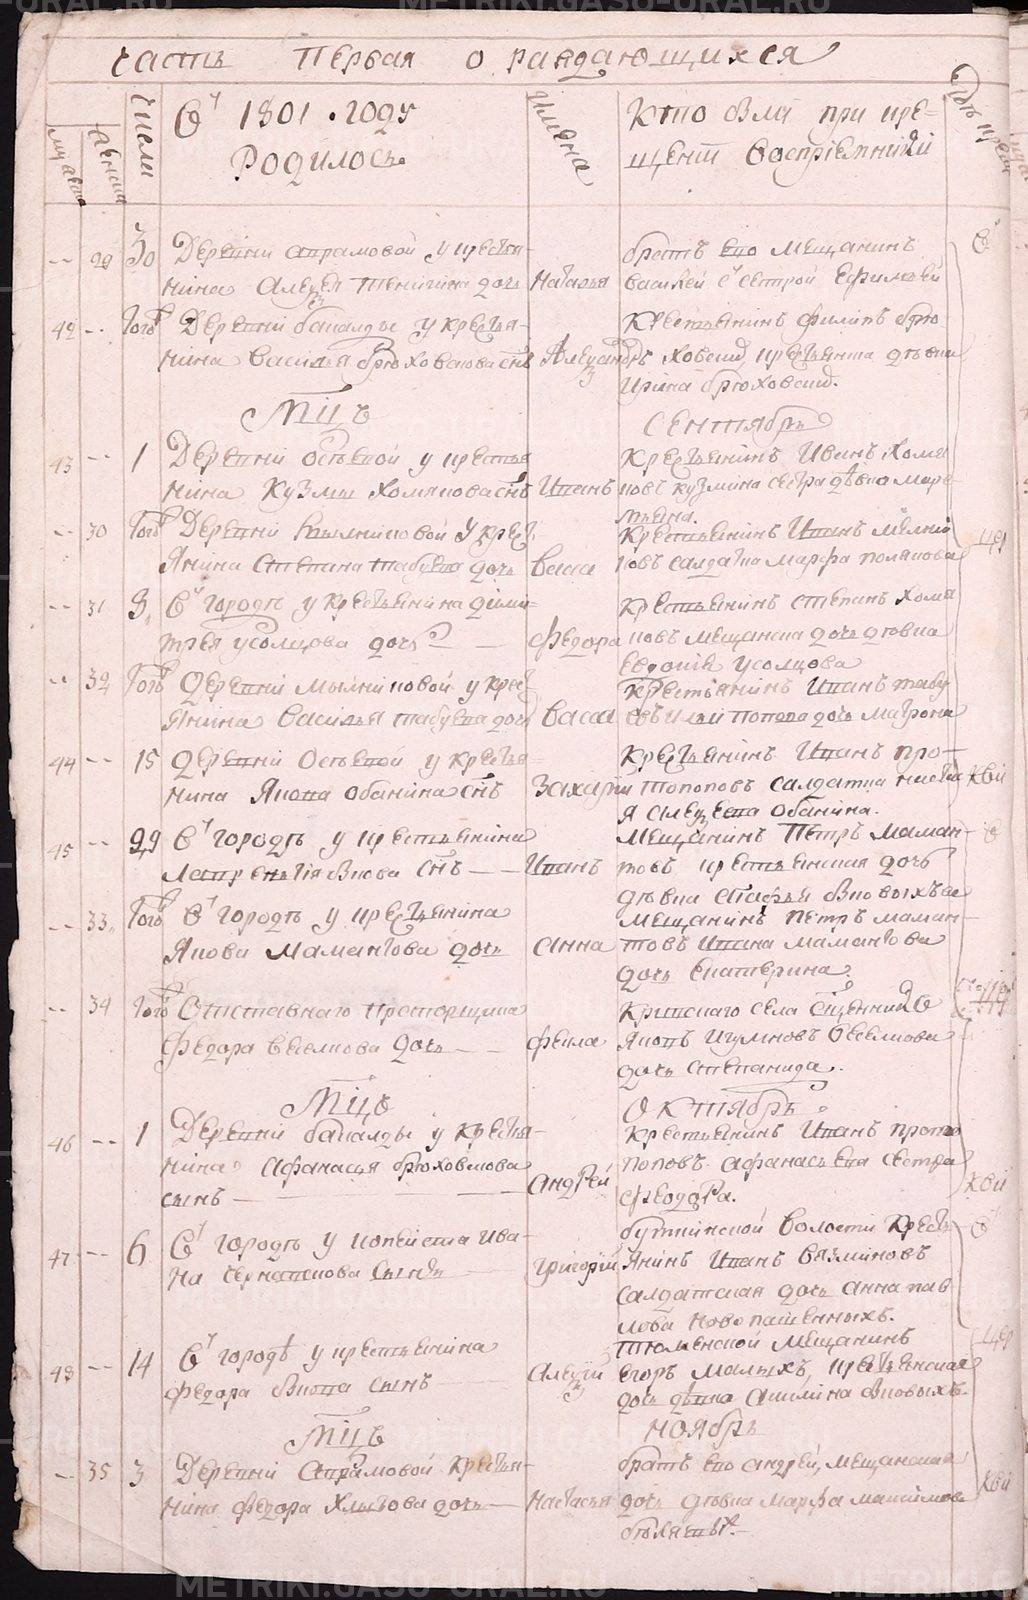 METRIKI.GASU-URAL.RU
часть первая о раждающихся
числи
В 1801 году
Родилось
имена
Кто были при кре-
щенiи воспрiемники
мужеска
женска
29 30 Деревни Аврамовой у крестья-
нина Алеѯея дочь Наталья
братъ ево мещанинъ
василей с сестрой Ефимьей
42 Того Деревни бакалды у крестья-
нина василья брюховскова снъ Алеѯандръ
Крестьянинъ филипъ брю
ховский, крестьянка дѣвка
Ирина брюховский.
Мцъ Сентябрь
43 1 Деревни Осѣевой у крестья
нина Кузмы Хомякова снъ Иванъ
Крестьянинъ Иванъ Хомя
ковъ кузмина сестра дѣвка Марь-
яна.
30 Того Деревни Мылниковой у крест
янина Степана табуева дочь васа
Крестьянинъ Иванъ мылни
ковъ салдатка марфа полякова
31 8 В городѣ у крестьянина дими-
трея усолцова дочь федора
крестьянинъ степанъ хомя
ковъ мещанска дочь дѣвка
Евдокия усолцова
32 Того Деревни Мылниковой у крест
янина василья табуева дочь васса
Крестьянинъ Иванъ табу
евъ попова дочь матрона
44 15 Деревни Осѣевой у крестья
нина Якова Обанина снъ Захарий
Крестьянинъ Иванъ про-
топоповъ салдатка настась
я Обанина.
45 29 В городѣ у крестьянина
Лаврентiя вкова снъ Иванъ
мещанинъ Петръ маман-
товъ крестьянская дочь
дѣвка агафья
33 Того В городѣ у крестьянина
Якова Мамантова дочь Анна
мещанинъ петръ маман-
товъ Ивана Мамантова
дочь Екатерина.
34 Того Отставнаго прапорщика
федора веселкова дочь фекла
села сщенникъ
Яковъ Игумновъ веселкова
дочь степанида.
Мцъ Октябрь
46 1 Деревни бакалды у крестья-
нина Афанасья брюховскова
сынъ Андрей
крестьянинъ Иванъ прото
поповъ Афанасьева сестра
Феодора.
47 6 В городѣ у копеиста Ива-
на черкашенова сынъ григорий
буткинской волости крест
янинъ Иванъ вязминовъ
салдатская дочь анна пав
лова новопашенныхъ.
48 14 В городѣ у крестьянина
федора вкова сынъ Алеѯѣй
тюменской мещанинъ
егоръ малыхъ, крестьянская
дочь дѣвка Акилина вковыхъ.
Мцъ Ноябрь
35 3 Деревни Аврамовой крестья-
нина федора Хлызова дочь Настасья
братъ ево андрей, мещанская
дочь дѣвка марфа максимова